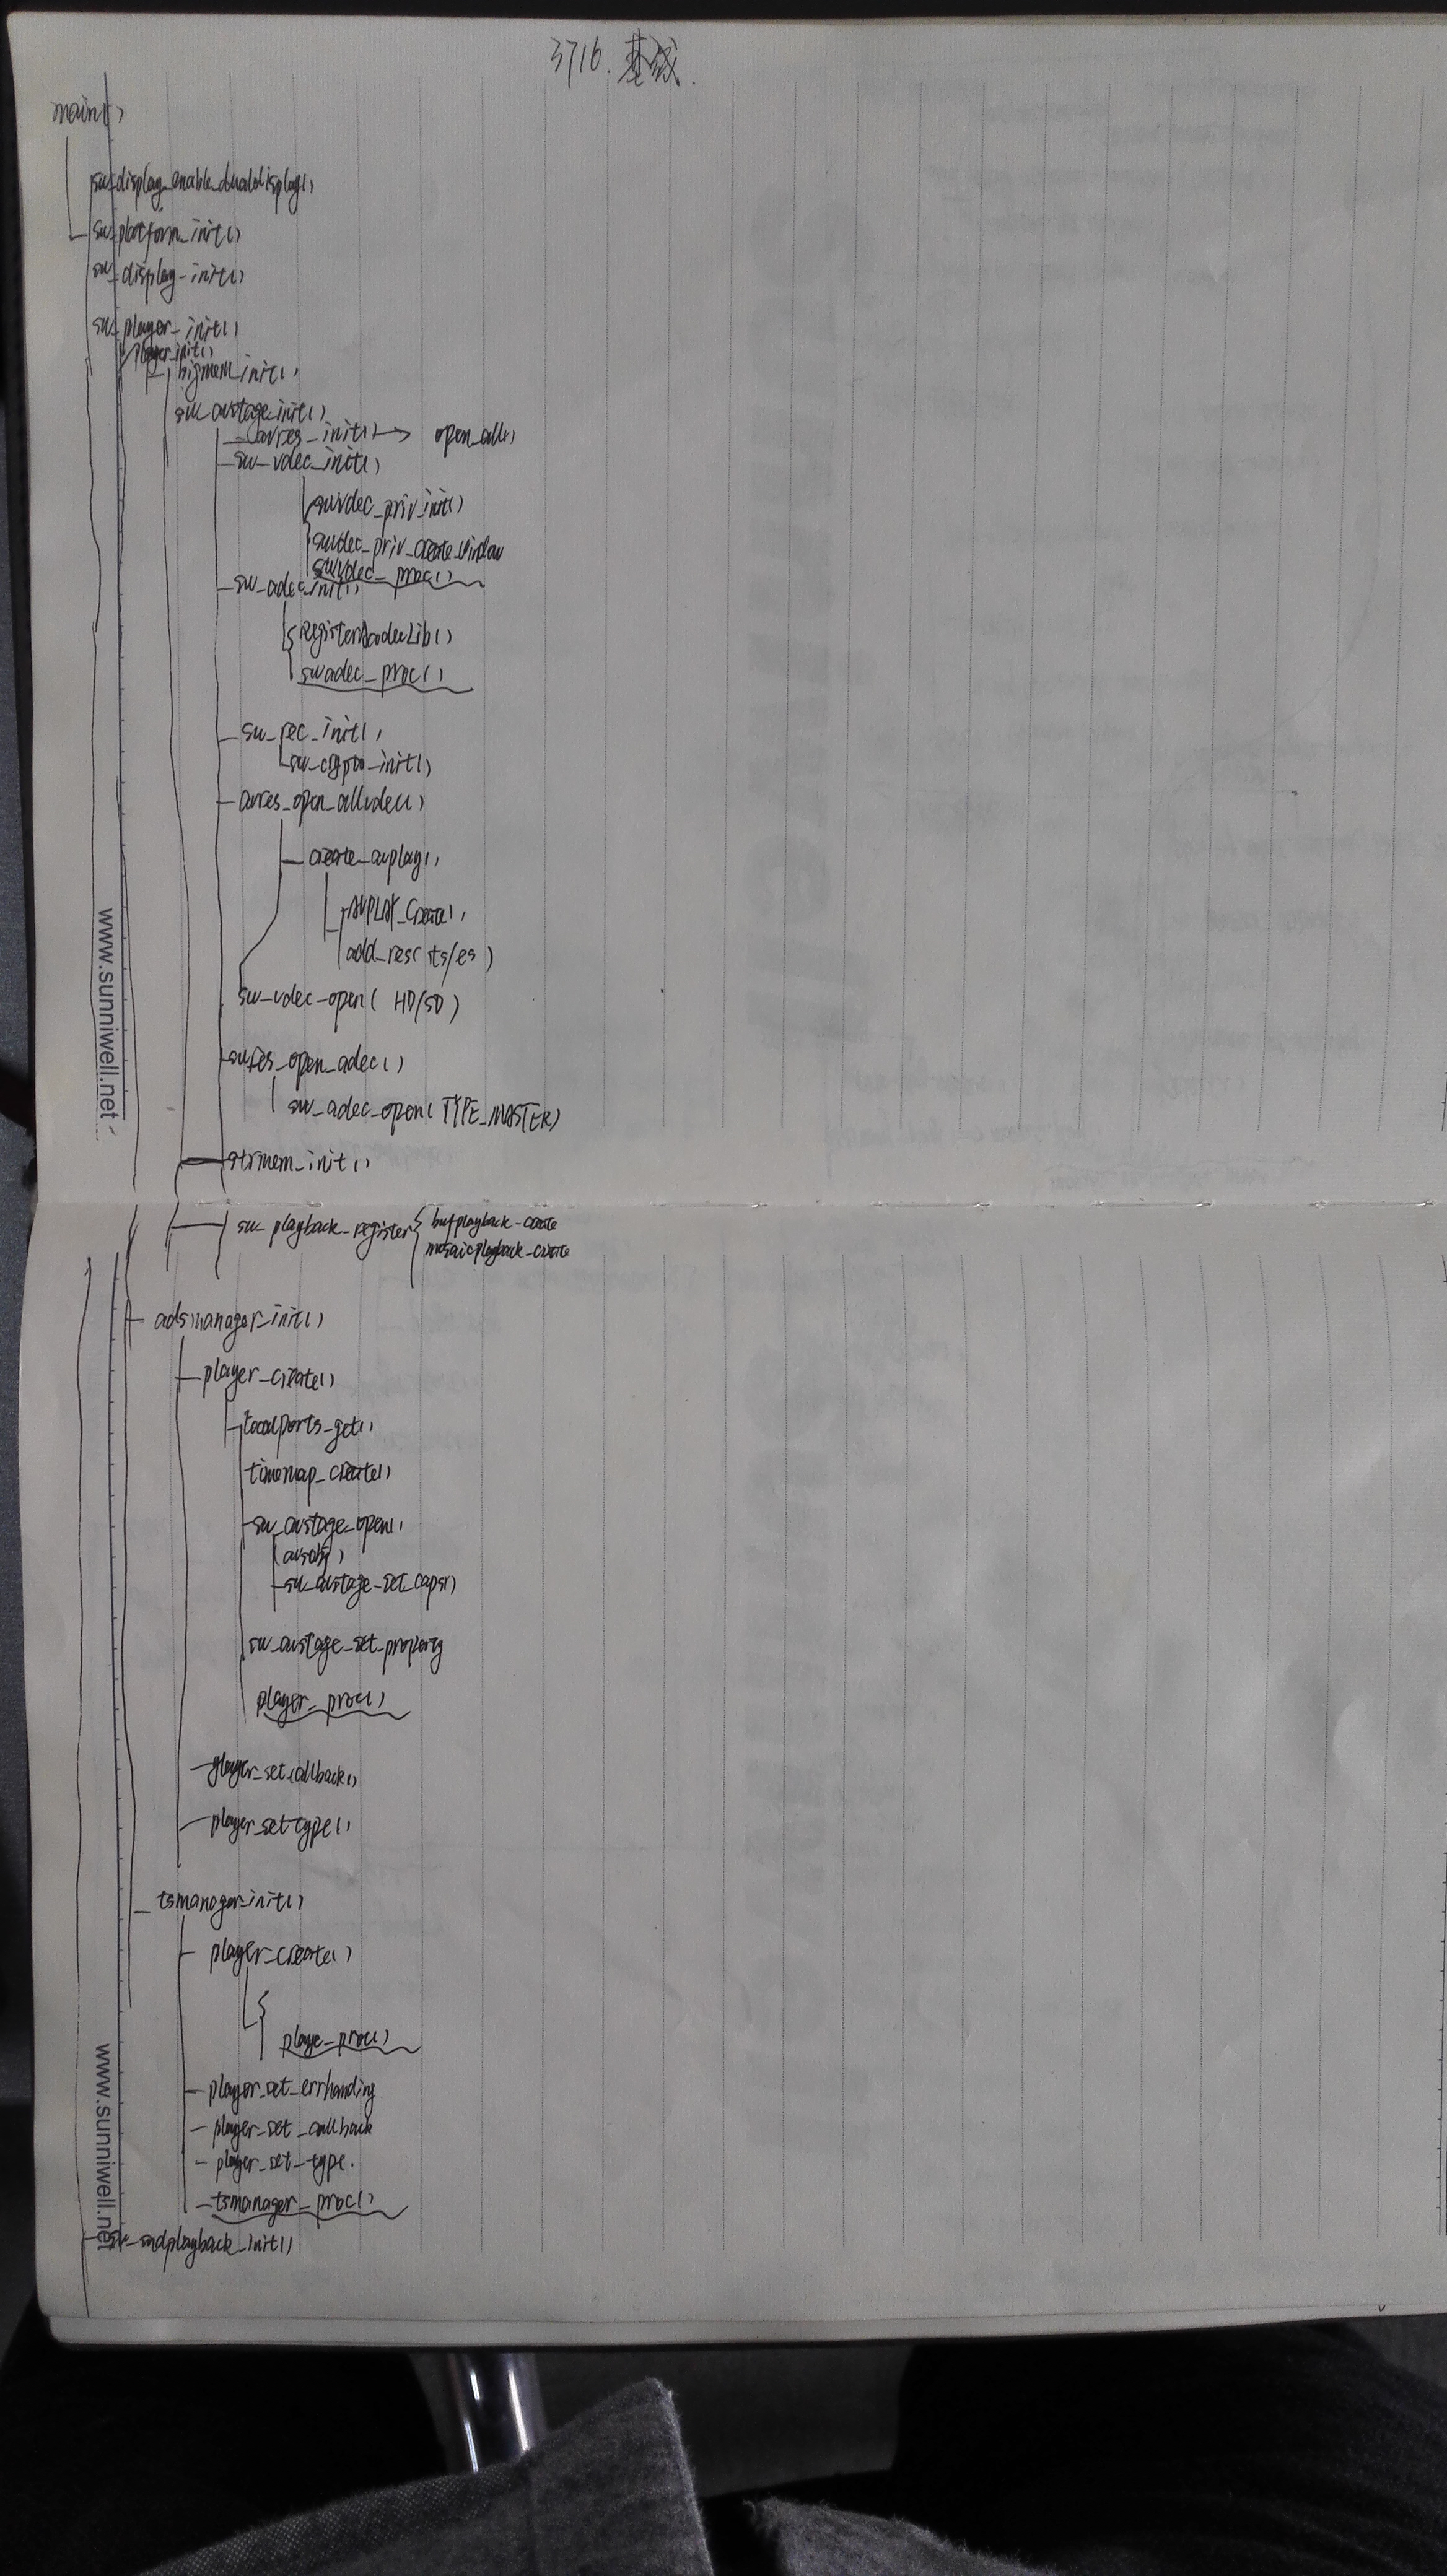 3716. 基线.
main()
sw_display_enable_dualdisplay()
sw_platform_init()
sw_display_init()
sw_player_init()
player_init()
bigmem_init()
sw_avstage_init()
avres_init() → open_all()
sw_vdec_init()
swvdec_priv_init()
swvdec_priv_create_window
swvdec_proc()
sw_adec_init()
registerAcodecLib()
swadec_proc()
sw_rec_init()
sw_crypto_init()
avres_open_allvdec()
create_avplay()
AVPLAY_Create()
add_res(ts/es)
sw_vdec_open( HD/SD)
avres_open_adec()
sw_adec_open(TYPE_MASTER)
strmem_init()
sw_playback_register
bufplayback_create
mosaicplayback_create
adsmanager_init()
player_create()
localports_get()
timemap_create()
sw_avstage_open()
sw_avstage_set_caps()
sw_avstage_set_property
player_proc()
player_set_callback()
player_set_type()
tsmanager_init()
player_create()
playe_proc()
player_set_errhanding
player_set_callback
player_set_type.
tsmanager_proc()
sw_sndplayback_init()
www.sunniwell.net
www.sunniwell.net